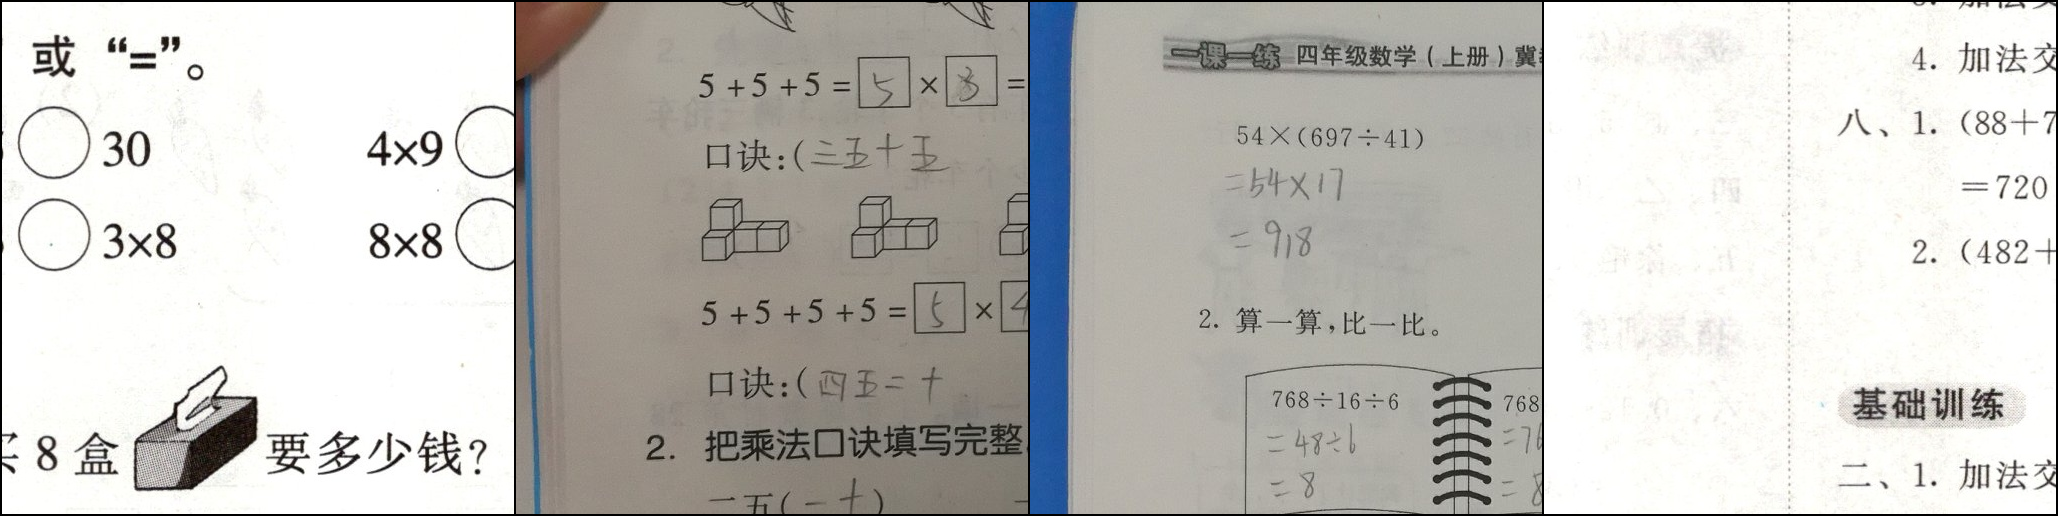 或“=”。
30 4×9
3×8 8×8
8盒 要多少钱?
5+5+5=5×3=
口诀:(三五十五
5+5+5+5=5×4
口诀:(四五二十
2. 把乘法口诀填写完整
二五(一十)
一课一练 四年级数学(上册)冀
54×(697÷41)
=54×17
=918
2. 算一算,比一比。
768÷16÷6 768
=48÷6 =76
=8 =8
4. 加法交
八、1. (88+7
=720
2. (482+
基础训练
二、1. 加法交